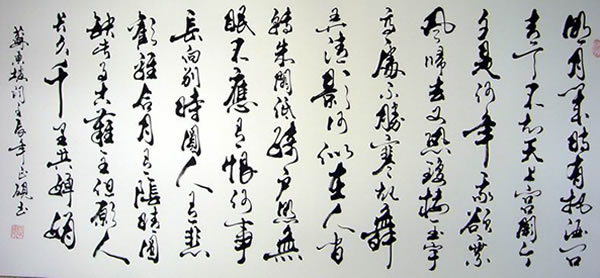 明月幾時有把酒问
青天不知天上宫闕今
夕是何年我欲乘
風歸去又恐瓊樓玉宇
高處不勝寒起舞
弄清影何似在人间
轉朱閣低綺户照無
眠不應有恨何事
長向别時圓人有悲
歡離合月有陰晴圓
缺此事古難全但願人
長久千里共嬋娟
蘇東坡词壬辰年